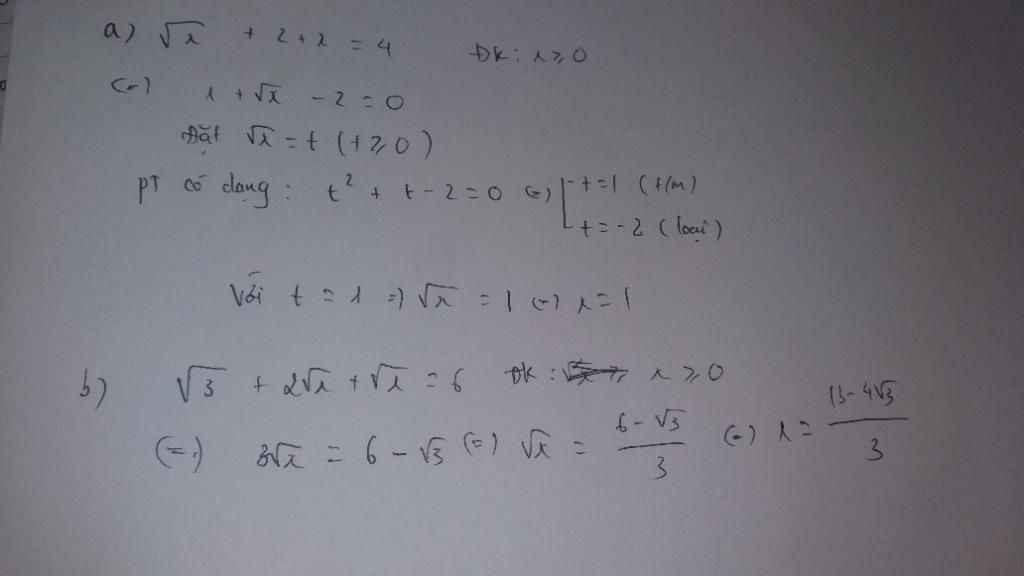 a) √x + 2 + x = 4 ĐK: x ≥ 0
(=) x + √x - 2 = 0
Đặt √x = t (t ≥ 0)
PT có dạng: t² + t - 2 = 0 (=) [ t = 1 (t/m)
t = -2 (loại)
Với t = 1 => √x = 1 (=) x = 1
b) √3 + 2√x + √x = 6 ĐK: x ≥ 0
(=) 3√x = 6 - √3 (=) √x = (6 - √3)/3 (=) x = (13 - 4√3)/3